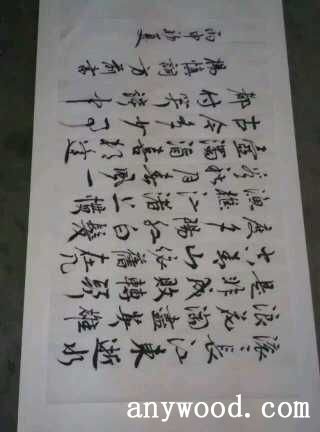 滚滚長江東逝水
浪花淘盡英雄
是非成敗轉頭空
青山依舊在幾
度夕陽紅白髮
漁樵江渚上慣
看秋月春風一
壺濁酒喜相逢
古今多少事
都付笑談中
楊慎詞
丙申初夏
anywood.com